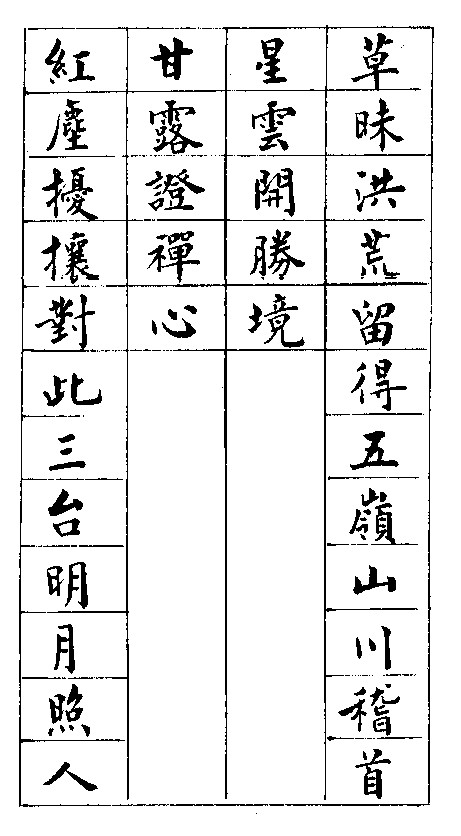 草昧洪荒留得五嶺山川稽首
星雲開勝境
甘露證禪心
紅塵擾攘對此三台明月照人